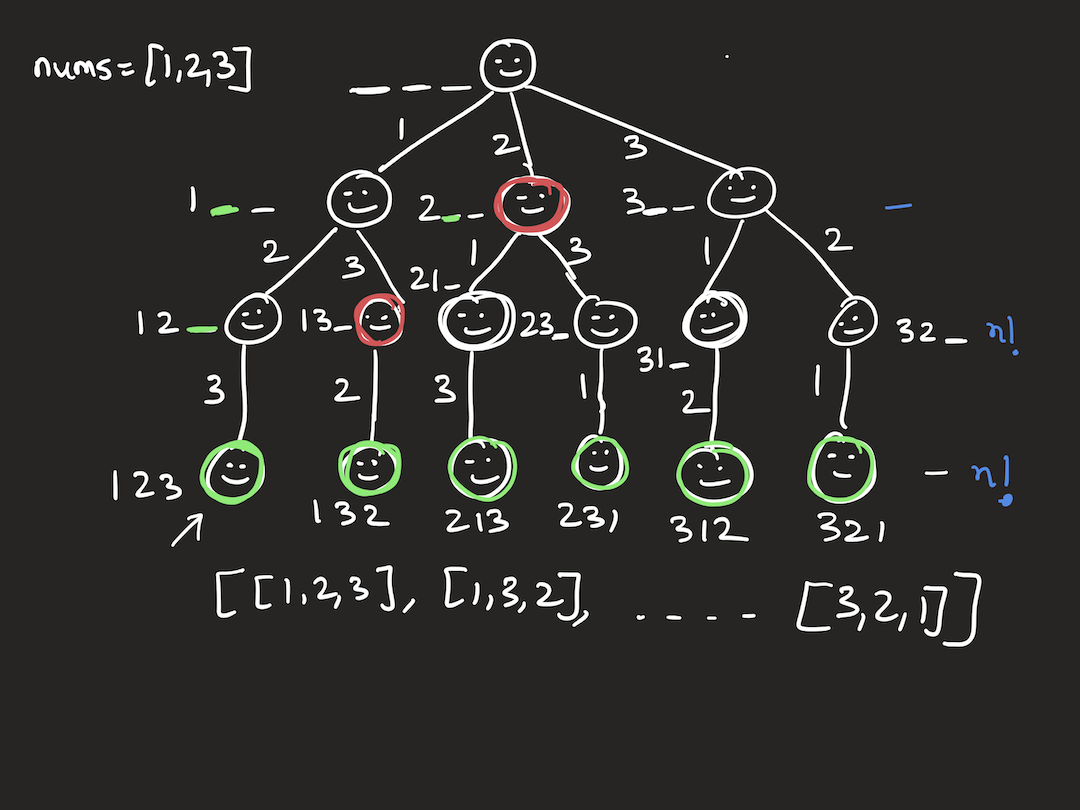 nums = [1,2,3]
_ _ _
1 2 3
1 _ _ 2 _ _ 3 _ _ _
2 3 1 3 1 2
21_
12_ 13_ 23_ 32_ n!
31_
3 2 3 1 2 1
123 - n!
132 213 231 312 321
[[1,2,3], [1,3,2], . - - - - [3,2,1]]